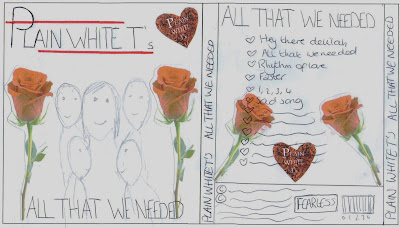 PLAIN WHITE T's
PLAIN
WHITE
T's
ALL THAT WE NEEDED
PLAIN WHITE T'S ALL THAT WE NEEDED
ALL THAT WE NEEDED
Hey there delilah
All that we needed
Rhythm of love
Faster
1, 2, 3, 4
Sad song
PLAIN
WHITE
T's
FEARLESS
PLAIN WHITE T'S ALL THAT WE NEEDED